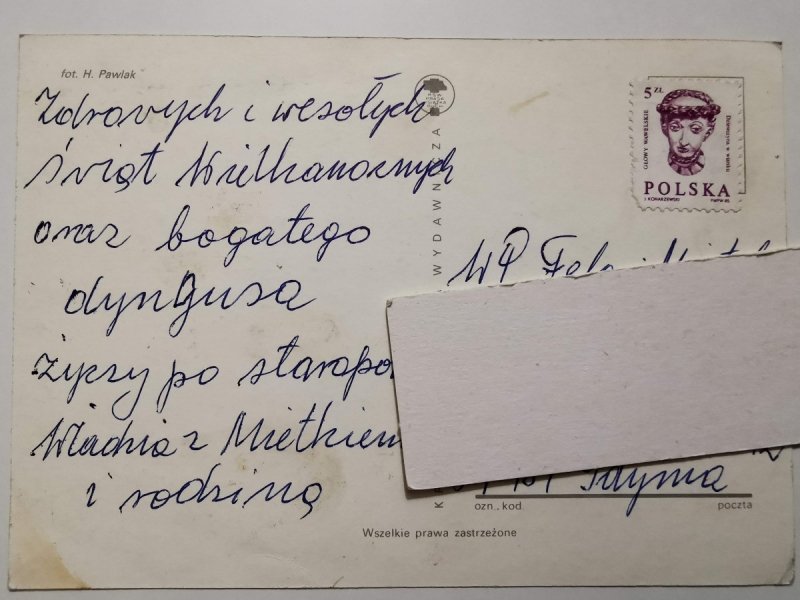 fot. H. Pawlak
Zdrowych i wesołych
Świąt Wielkanocnych
oraz bogatego
dyngusa
życzy po staropo
Władzia z Mietkiem
i rodziną
WYDAWN
ZA
K
5 ZŁ
GŁOWY WAWELSKIE
Dziewczyna w wianku
POLSKA
J. KONARZEWSKI
PWPW 85
WP
Gdynia
ozn. kod
poczta
Wszelkie prawa zastrzeżone